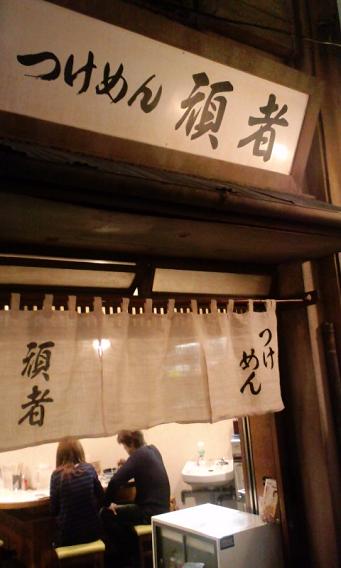 つけめん 頑者
つけめん
頑者